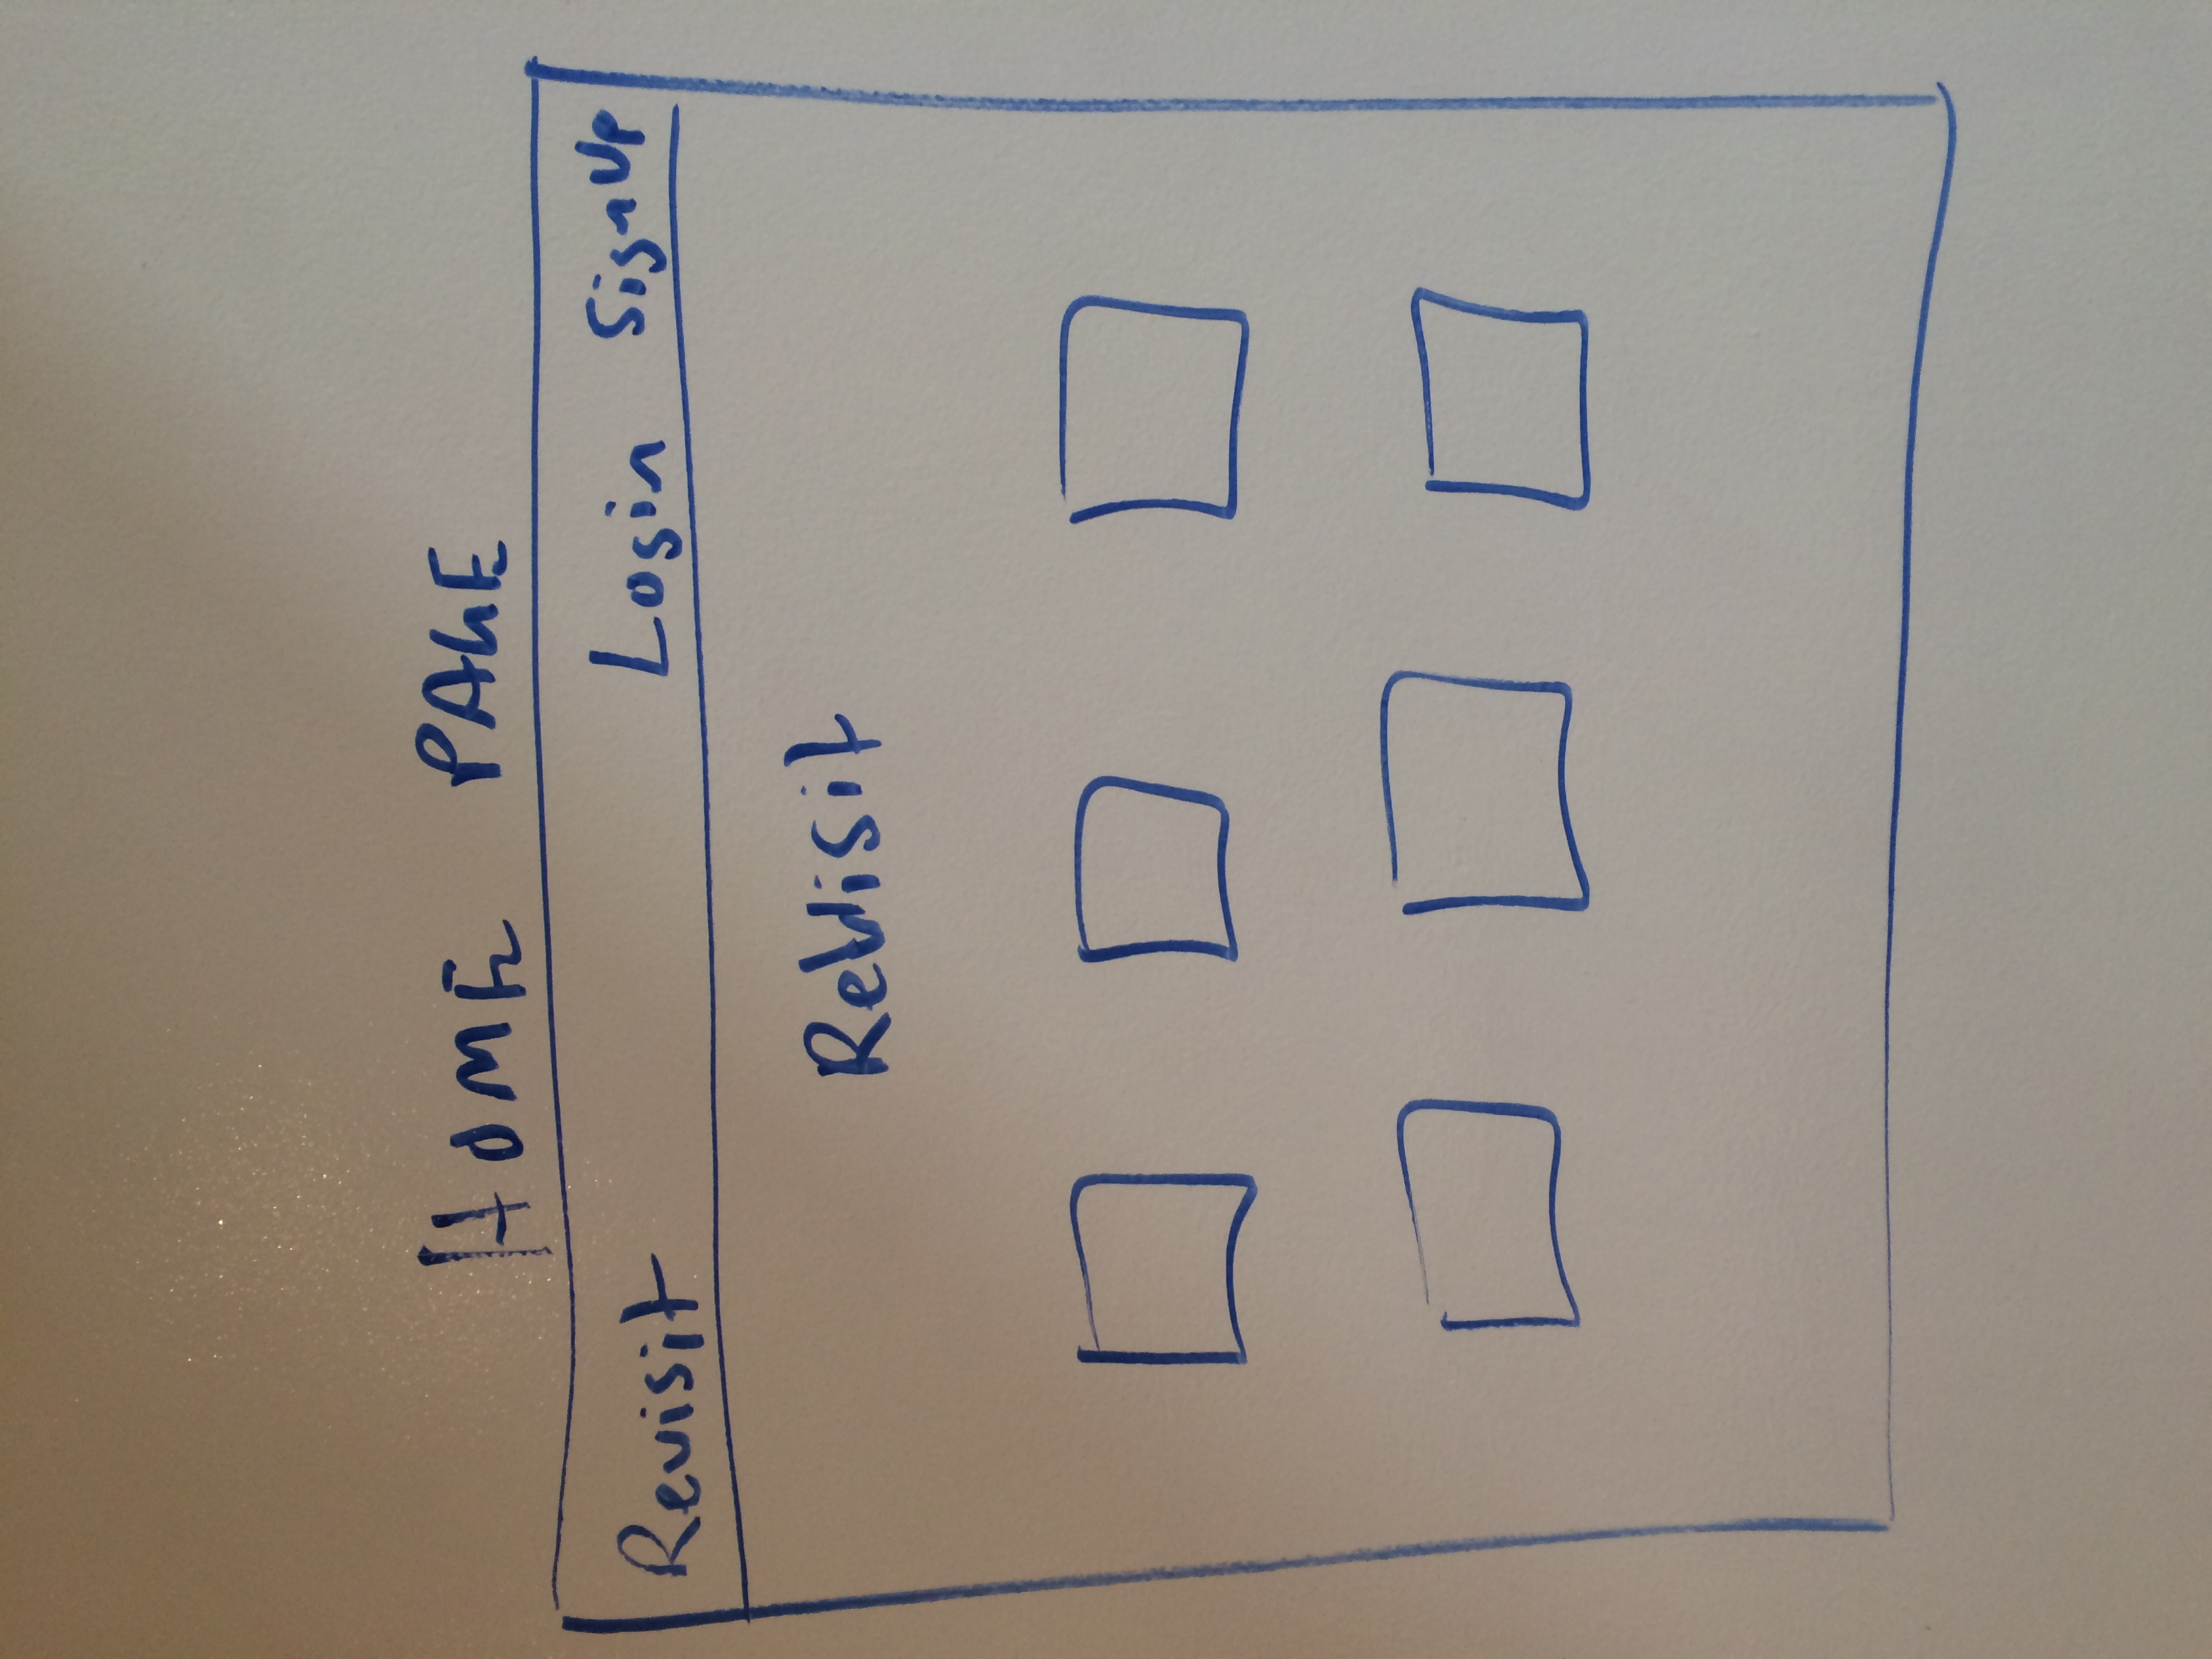 HOME PAGE
Revisit Login SignUp
ReVisit